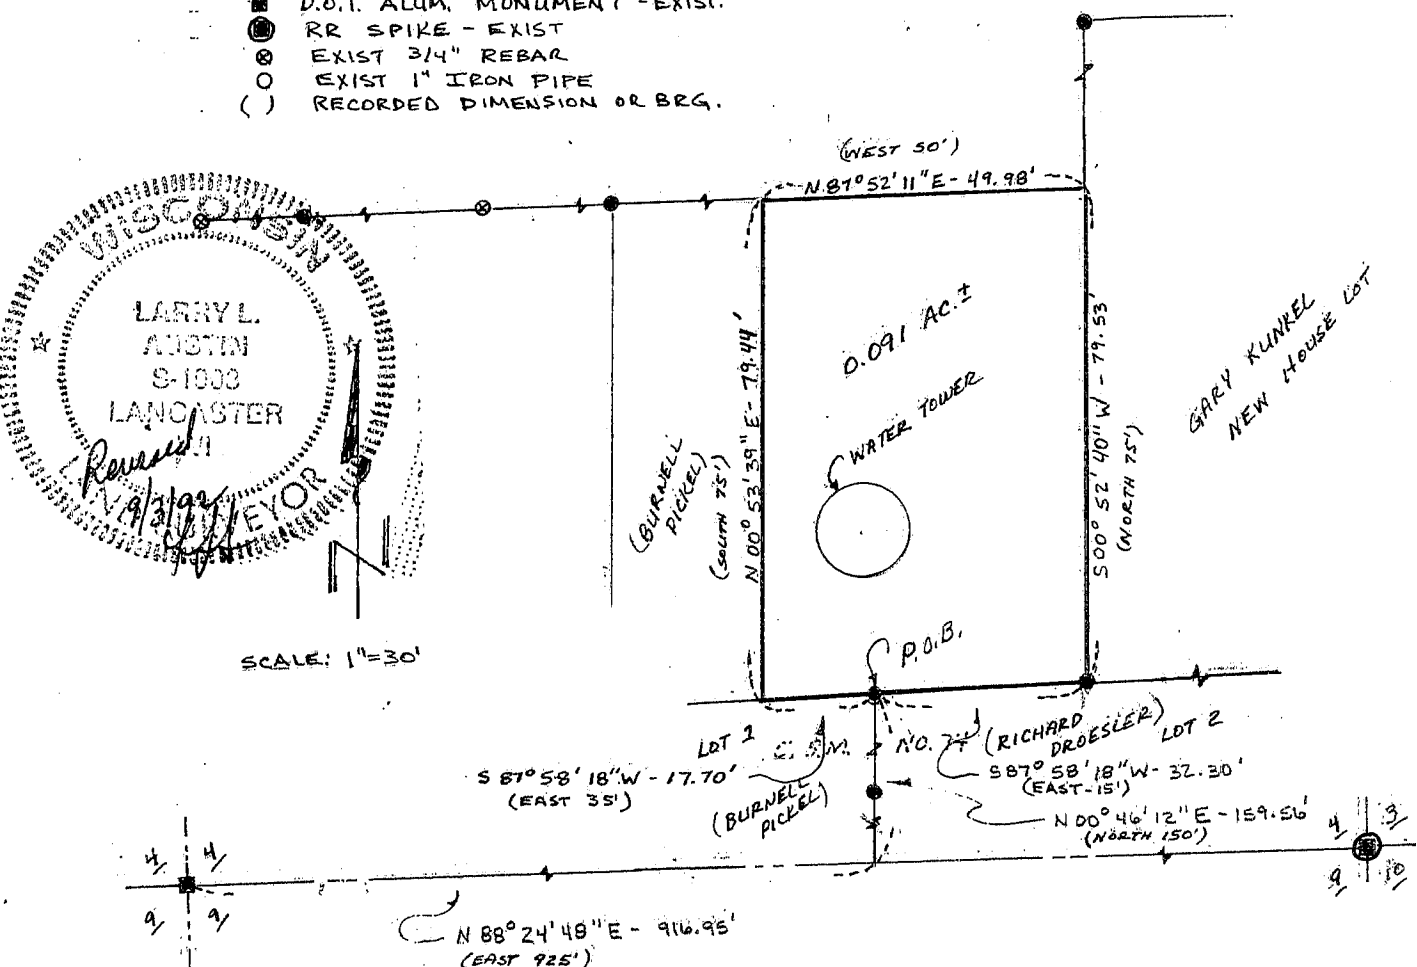 D.O.T. ALUM. MONUMENT - EXIST.
RR SPIKE - EXIST
EXIST 3/4" REBAR
EXIST 1" IRON PIPE
( ) RECORDED DIMENSION OR BRG.
(WEST 50')
N 87° 52' 11" E - 49.98'
WISCONSIN
LARRY L.
AUSTIN
S-1003
LANCASTER
WI
LAND SURVEYOR
Revised
9/3/92
N
SCALE: 1"=30'
(BURNELL
PICKEL)
(SOUTH 75')
N 00° 53' 39" E - 79.44'
0.091 AC.±
WATER TOWER
S 00° 52' 40" W - 79.53'
(NORTH 75')
GARY KUNKEL
NEW HOUSE LOT
P.O.B.
LOT 1
C.S.M. NO.
(RICHARD
DROESLER)
LOT 2
S 87° 58' 18" W - 17.70'
(EAST 35')
(BURNELL
PICKEL)
S 87° 58' 18" W - 32.30'
(EAST-15')
N 00° 46' 12" E - 159.56'
(NORTH 150')
4 4
9 9
4 3
9 10
N 88° 24' 48" E - 916.95'
(EAST 925')